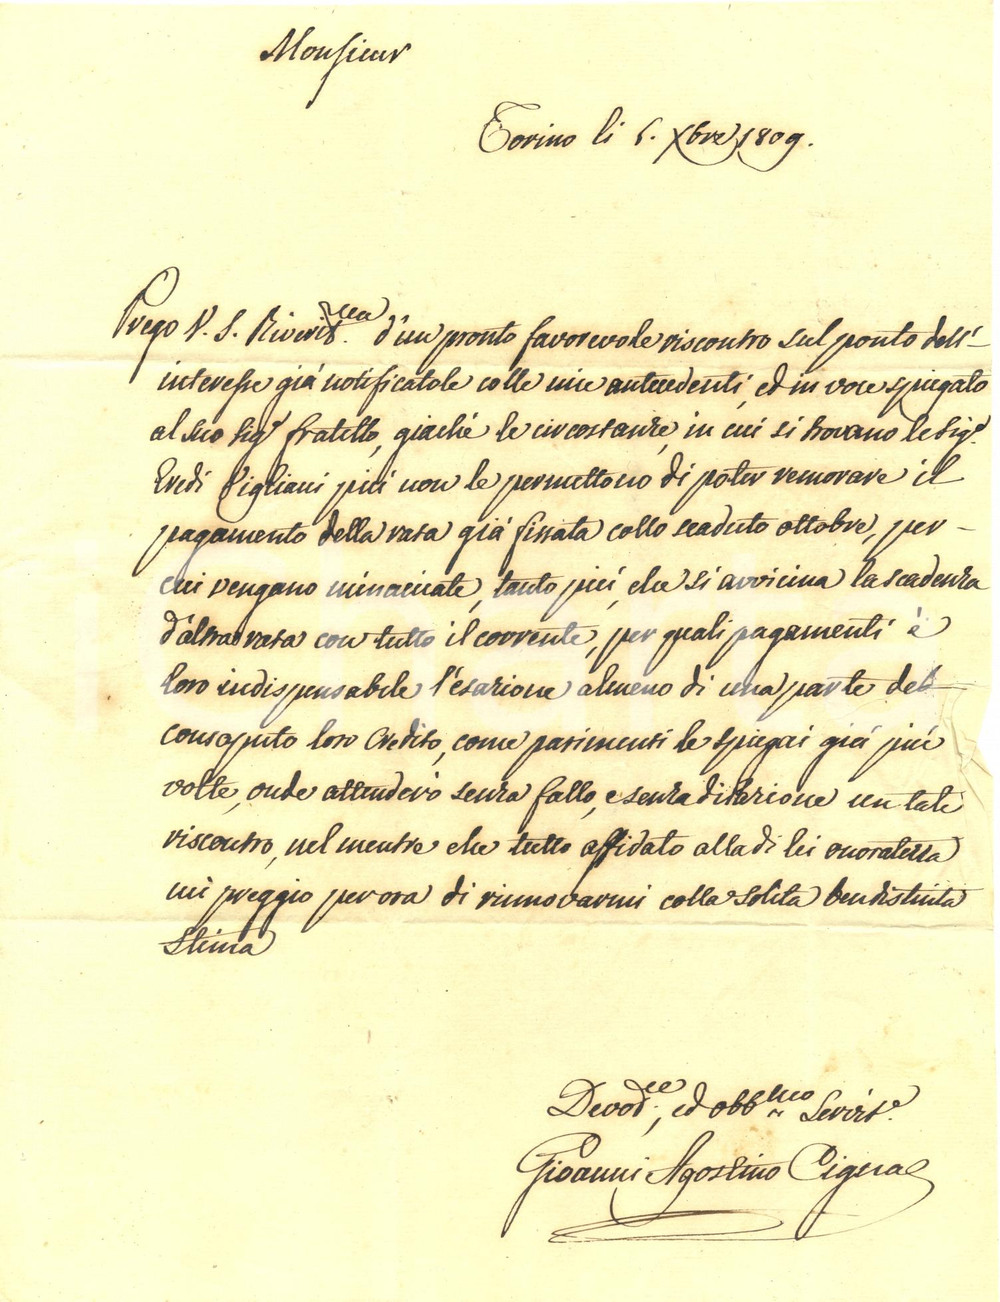 Monsieur
Torino li 5. Xbre 1809.
Prego V. S. Riverit.ma d'un pronto favorevole riscontro sul ponto dell'-
interesse già notificatole colle mie antecedenti, ed in voce spiegato
al suo Sig.r fratello, giachè le circostanze, in cui si trovano le Sig.e
Eredi Vigliani più non le permettono di poter remorare il
pagamento della rata già fissata collo scaduto ottobre, per-
cui vengano minaciate, tanto più, che si avvicina la scadenza
d'altra rata con tutto il corrente, per quali pagamenti è
loro indispensabile l'esazione almeno di una parte del
consaputo loro Credito, come parimenti le spiegai già più
volte, onde attenderò senza fallo, e senza dilazione un tale
riscontro, nel mentre che tutto affidato alla di lei onoratezza
mi preggio per ora di rinnovarmi colla solita ben distinta
stima
Devot.e, ed obb.mo Servit.e
Giovanni Agostino Cigna